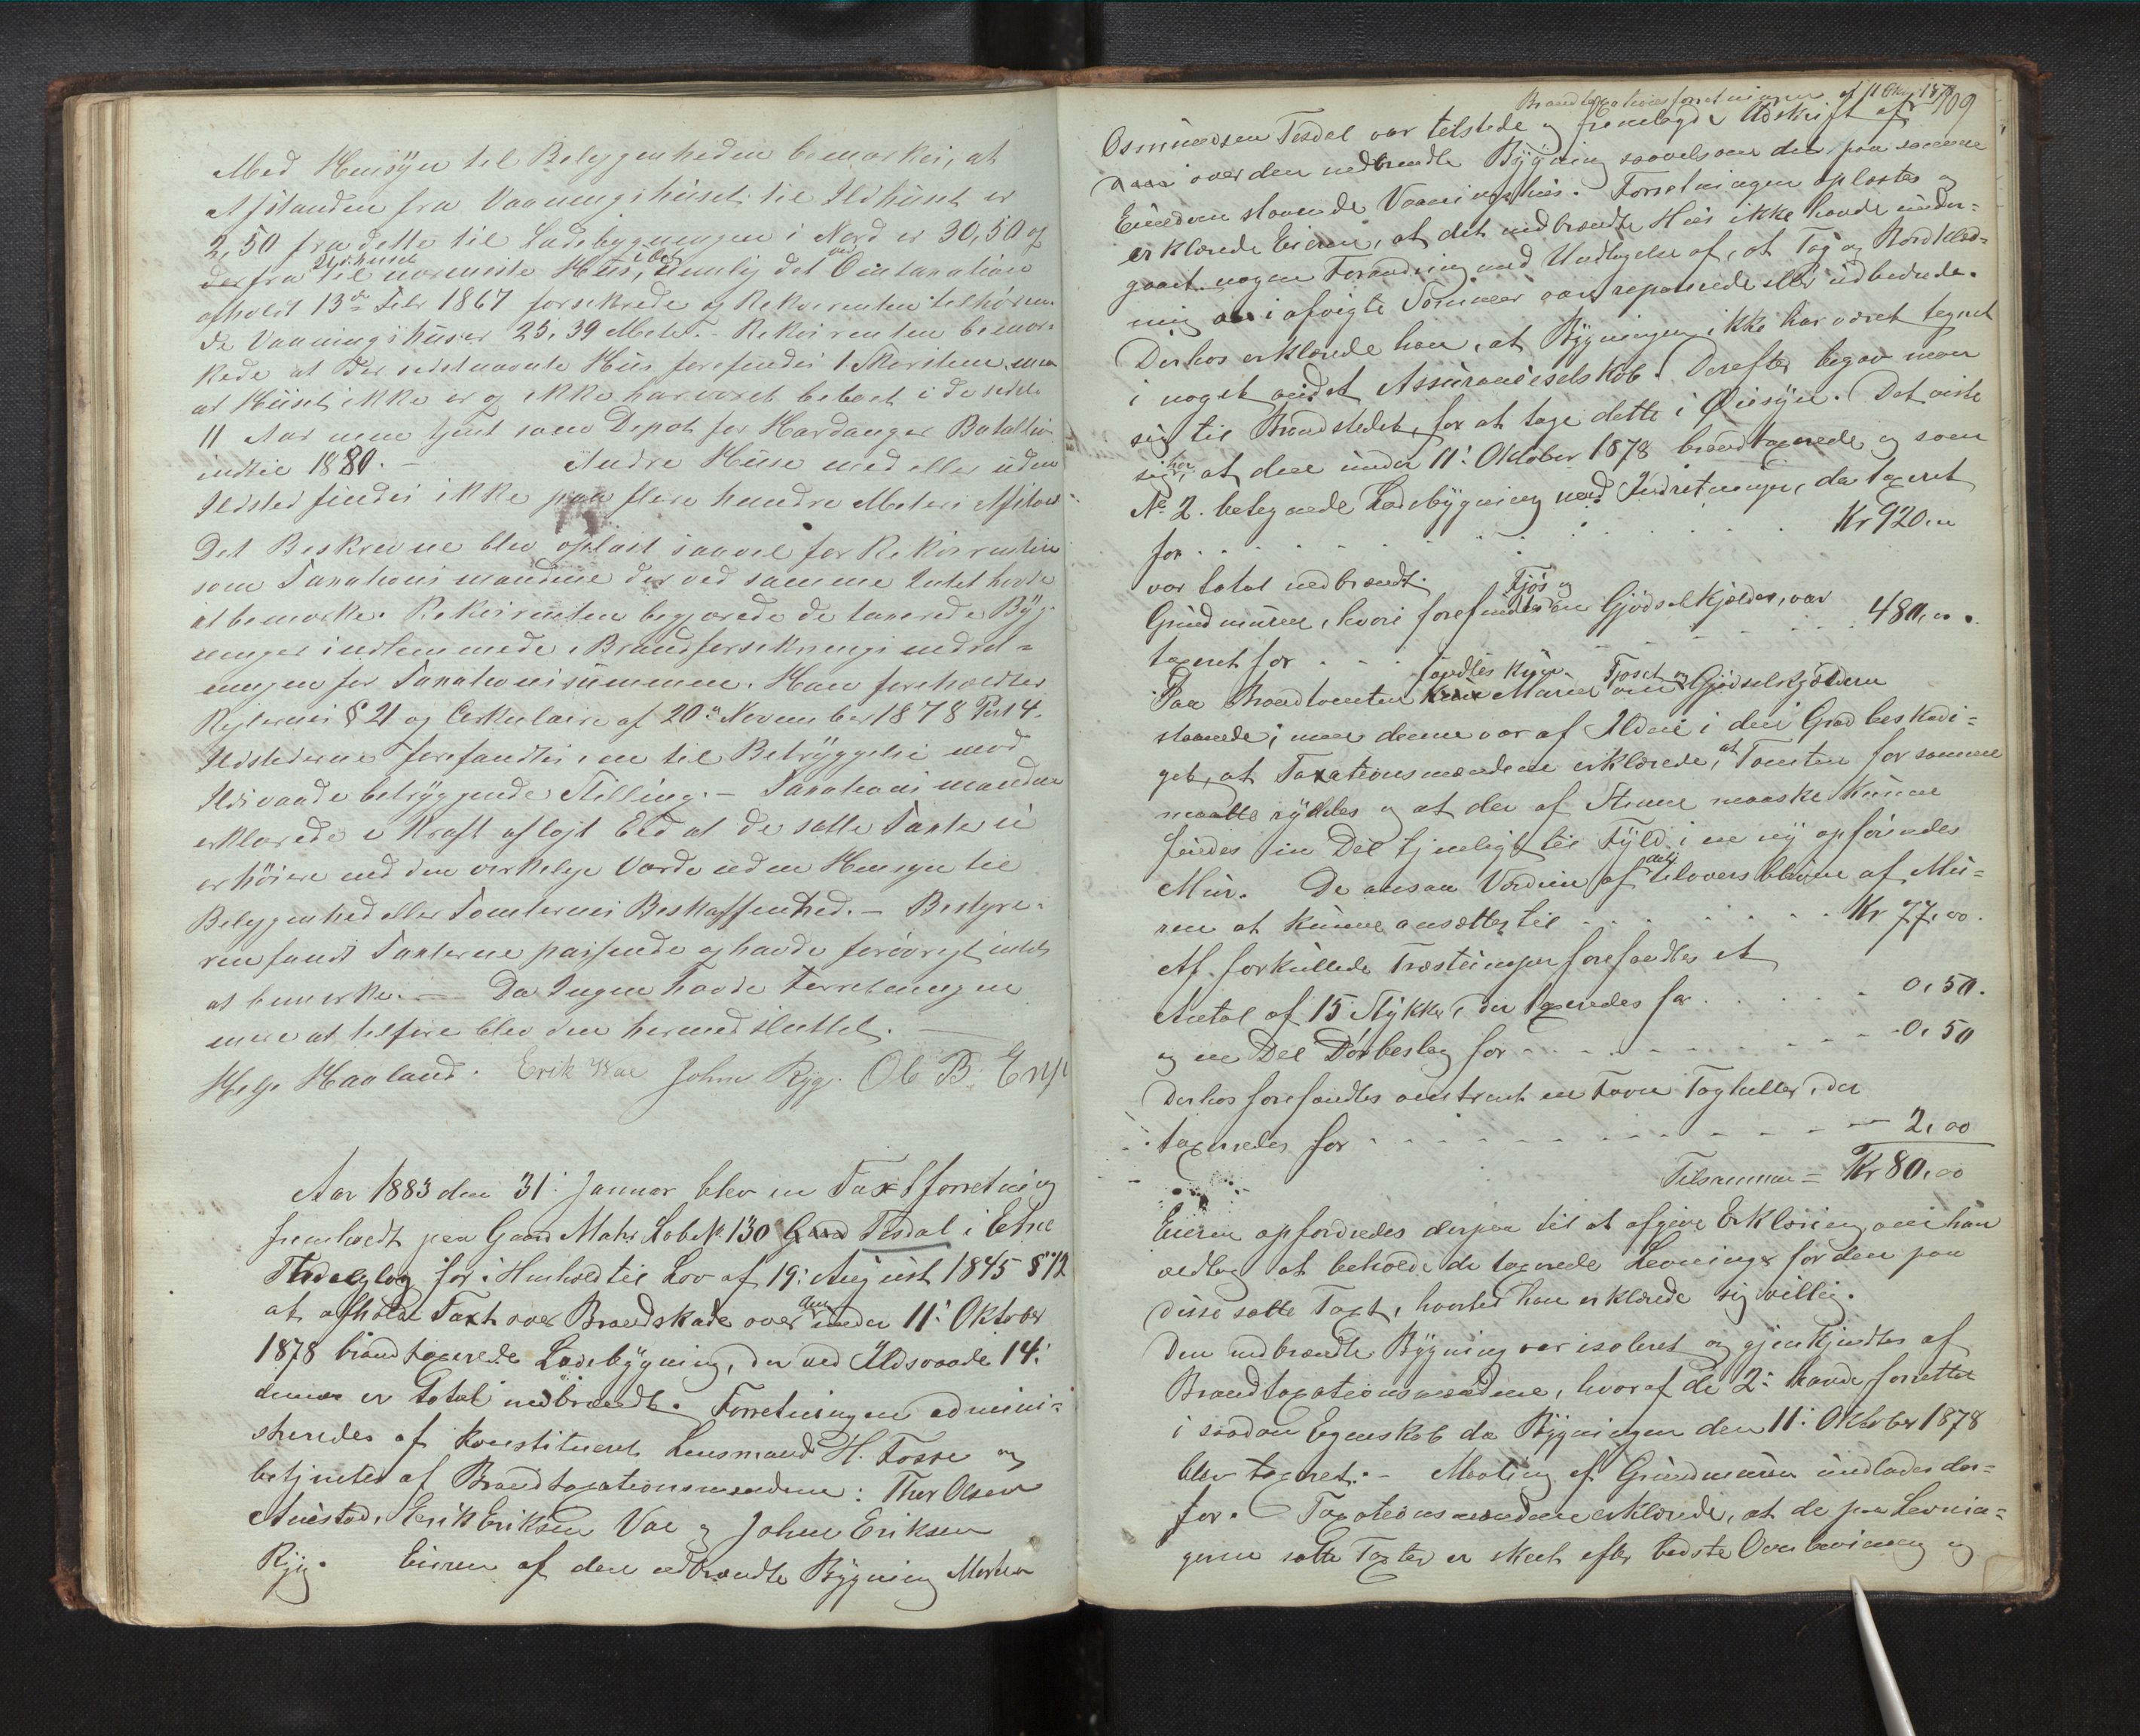 Med Hensÿn til Beleggenheden bemærkes, at
Afstanden fra Vaaningshüset til Ildhüset er
2,50 fra dette til Ladebygningen i Nord er 30,50 og
derfra til nærmeste Hüs, nemlig det ved Omtaxation
afholdt 13de Febr 1867 forsikrede og Rekvirenten tilhøren-
de Vaaningshüs er 25,39 Meter. - Rekvirenten bemær-
kede at der sidstnævnte Hüs forefindes 1 Skorsten, men
at Hüset ikke er og ikke har været beboet i de sidste
11 Aar men tjent som Depot for Hardanger Batallion
indtil 1880. - Andre Hüse med eller üden
Ildsted findes ikke paa flere hundre Meters Afstand
Det Beskrevne blev oplæst saavel for Rekvirenten
som Taxationsmændene der ved samme Intet havde
at bemærke. Rekvirenten begjærede de taxerede Byg-
ninger indlemmede i Brandforsikringsindret=
ningen for Taxationssümmen. Han foreholdtes
Reglernes § 21 og Cirkulaire af 20de November 1878 Post 4.
Ildstederne forefandtes i en til Betryggelse mod
Ildsvaade betryggende Stilling. - Taxationsmændene
erklærede i Kraft aflagt Eed at de satte Taxter ei
er høiere end den virkelige Værdi uden Hensyn til
Beleggenhed eller Tomternes Beskaffenhed. - Bestyre-
ren fandt Taxterne passende og havde forøvrigt intet
at bemærke. - Da Ingen havde Forretningen
mere at tilføre blev den hermed sluttet. -
Helje Haaland. Erik Vae John Ryg. Ole B. Enge
Aar 1883 den 31. Januar blev en Taxtforretning
fremholdt paa Gaard Matr Løbe No 130 Tesdal i Etne
Thinglag for i Henhold til Lov af 19. August 1845 § 12
at afholde Taxt over Brandskade over den under 11. Oktober
1878 brandtaxerede Ladebÿgning, der ved Ildsvaade 14.
dennes er total nedbrændt. Forretningen admini=
streredes af konstitueret Lensmand H. Fosse og
betjentes af Brandtaxationsmændene: Thor Olsen
Austad, Erik Eriksen Vae og John Eriksen
Ryg. Eieren af den nedbrændte Bÿgning Morten
Brandtaxationsforretningen af 11 Okbr 1878 109
Osmündsen Tesdal var tilstede og fremlagde Udskrift af
over den nedbrendte Bÿgning saavelsom den paa samme
Eiendom staaende Vaaningshüs. Forretningen oplæstes og
erklærede Eieren, at det nedbrændte Hüs ikke havde ünder-
gaaet nogen Forandring med Undtagelse af, at Tag og Bordklæd=
ning i afvigte Sommer var repareret eller üdbedrede.
Derhos erklærede han, at Bÿgningen ikke har været tegnet
i noget andet Assüranceselskab. Derefter begav man
sig til Brandstedet, for at tage dette i Øiesÿn. Det viste
sig her, at den ünder 11. Oktober 1878 brandtaxerede og som
No 2. betegnede Ladebÿgning med Indretninger, da taxeret
for . . . . . . . . . . . . Kr 920,00
var total nedbrændt.
Gründmüren, hvori forefindtes Fjøs og en Gjødselkjelder, var
taxeret for . . . . . . . . . 480,00.
Paa Brandtomten fandtes Müren om Fjøset og Gjødselskjelderen
staaende, men denne var af Ilden i den Grad beskadi=
get, at Taxationsmændene erklærede, at Tomten for samme
maatte rÿddes og at der af Stenene maaske Künne
findes en Del tjenligt til Fÿld i en nÿ opførendes
Mür. De ansaa Værdien af det tiloversblevne af Mü=
ren at künne ansættes til . . . . . . . Kr 77,00.
Af forkullede Træstümper forefandtes et
Antal af 15 Stÿkker, der taxeredes for . . . . . 0,50.
og en Del Dørbeslag for - - - - - - - - - 0,50
Derhos forefandtes omtrent en Favn Tagheller, der
taxeredes for - - - - - - - - - - - - 2,00
Tilsammen = Kr 80,00
Eieren opfordredes derpaa til at afgive Erklæring om han
vedtog at beholde de taxerede Levninger for den paa
disse satte Taxt, hvortil han erklærede sig villig.
Den nedbrændte Bÿgning var isoleret og gjenkjendtes af
Brandtaxationsmændene, hvoraf de 2: havde forrettet
i saadan Egenskab da Bÿgningen den 11. Oktober 1878
blev taxeret. - Maaling af Gründmüren ündlades der=
for. Taxationsmændene erklærede, at de paa Levnin=
gerne satte Taxter er skeet efter bedste Overbevisning og